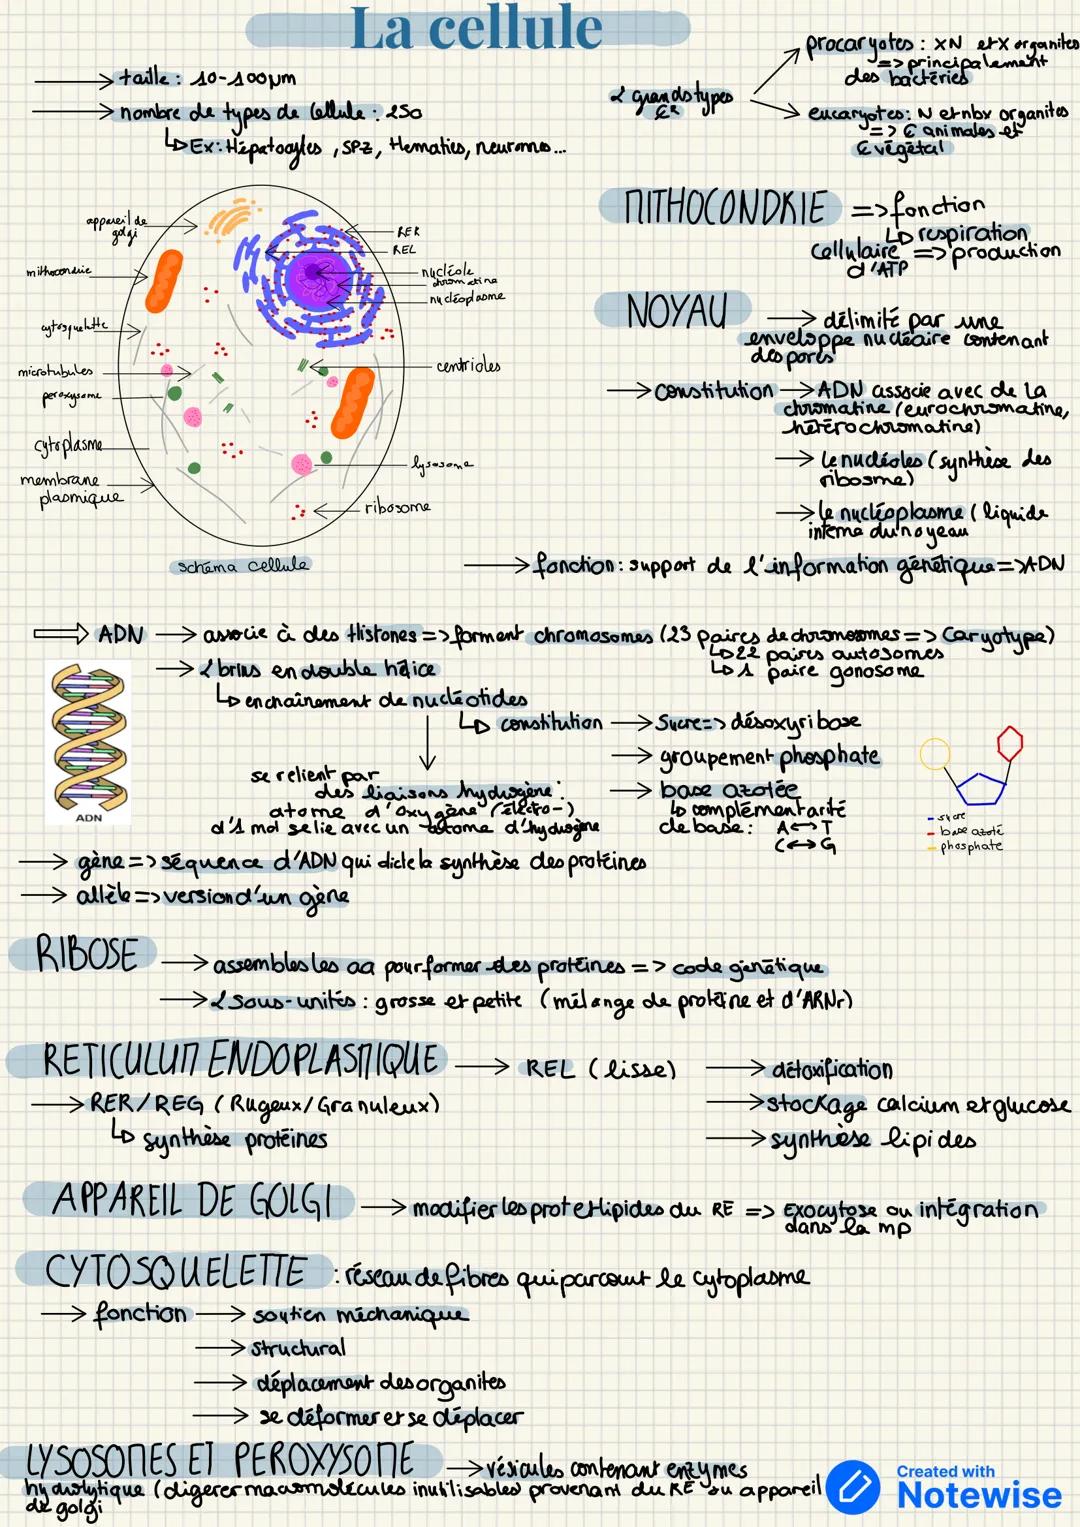 La cellule
→ taille : 10-100μm
→ nombre de types de cellule : 250
↳ Ex: Hépatocytes, SPZ, Hematies, neurones...
2 grands types
procaryotes : XN et X organites
=> principalement
des bactéries
eucaryotes: N et nbx organites
=> € animales et
€ végétal
appareil de
golgi
mithocondrie
cytosquelette
microtubules
peroxysome
cytoplasme
membrane
plasmique
RER
REL
nucléole
chromatine
nucléoplasme
centrioles
lysosome
ribosome
schéma cellule
MITHOCONDRIE => fonction
↳ respiration
cellulaire => production
d'ATP
NOYAU → délimité par une
enveloppe nucléaire contenant
des pores
→ constitution → ADN associe avec de la
chromatine (eurochromatine,
hétérochromatine)
→ le nucléoles (synthèse des
ribosme)
→ le nucléoplasme (liquide
interne du noyeau
→ fonction : support de l'information génétique => ADN
⇒ ADN → associe à des Histones => forment chromosomes (23 paires de chromosmes => Caryotype)
↳ 22 paires autosomes
↳ 1 paire gonosome
→ 2 brins en double hélice
↳ enchaînement de nucléotides
↳ constitution → Sucre => désoxyribose
→ groupement phosphate
→ base azotée
↳ complémentarité
de base : A ↔ T
C ↔ G
se relient par
des liaisons hydrogène :
atome d'oxygène (électro-)
d'1 mol se lie avec un atome d'hydrogène
ADN
- sucre
- base azoté
- phosphate
→ gène => séquence d'ADN qui dicte la synthèse des protéines
→ allèle => version d'un gène
RIBOSE → assembles les aa pour former des protéines => code génétique
→ 2 sous-unités : grosse et petite (mélange de protéine et d'ARNr)
RETICULUM ENDOPLASMIQUE → REL (lisse) → détoxification
→ RER/REG (Rugeux/Granuleux)
→ stockage calcium et glucose
↳ synthèse protéines
→ synthèse lipides
APPAREIL DE GOLGI → modifier les prot et lipides du RE => Exocytose ou intégration
dans la mp
CYTOSQUELETTE : réseau de fibres qui parcourt le cytoplasme
→ fonction → soutien méchanique
→ structural
→ déplacement des organites
→ se déformer et se déplacer
LYSOSOMES ET PEROXYSOME → vésicules contenant enzymes
hydrolytique (digerer macromolécules inutilisables provenant du RE ou appareil
de golgi
Created with
Notewise